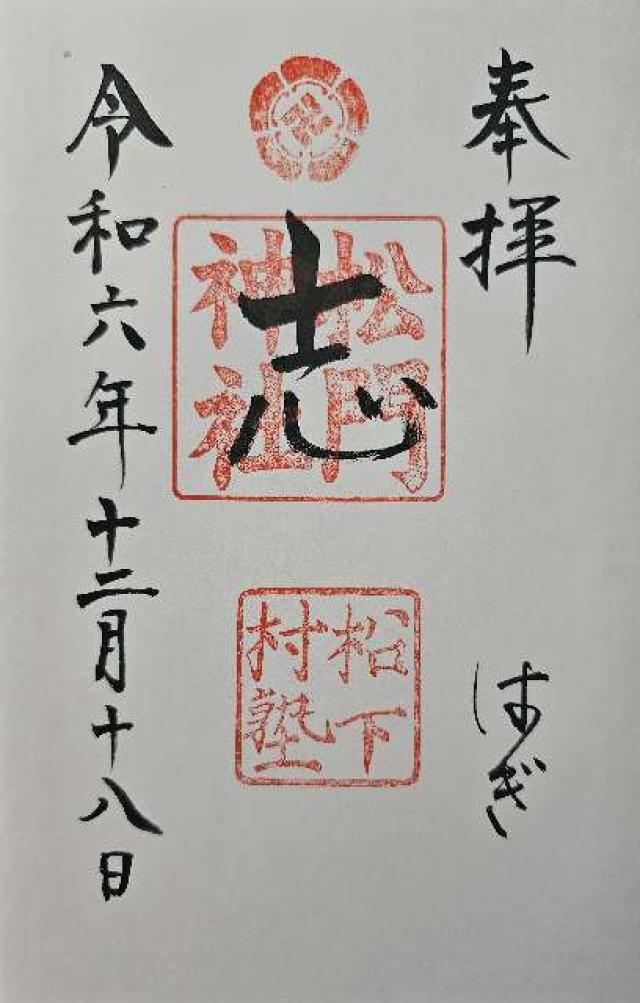 奉拝
はぎ
志
松門神社
松下村塾
令和六年十二月十八日